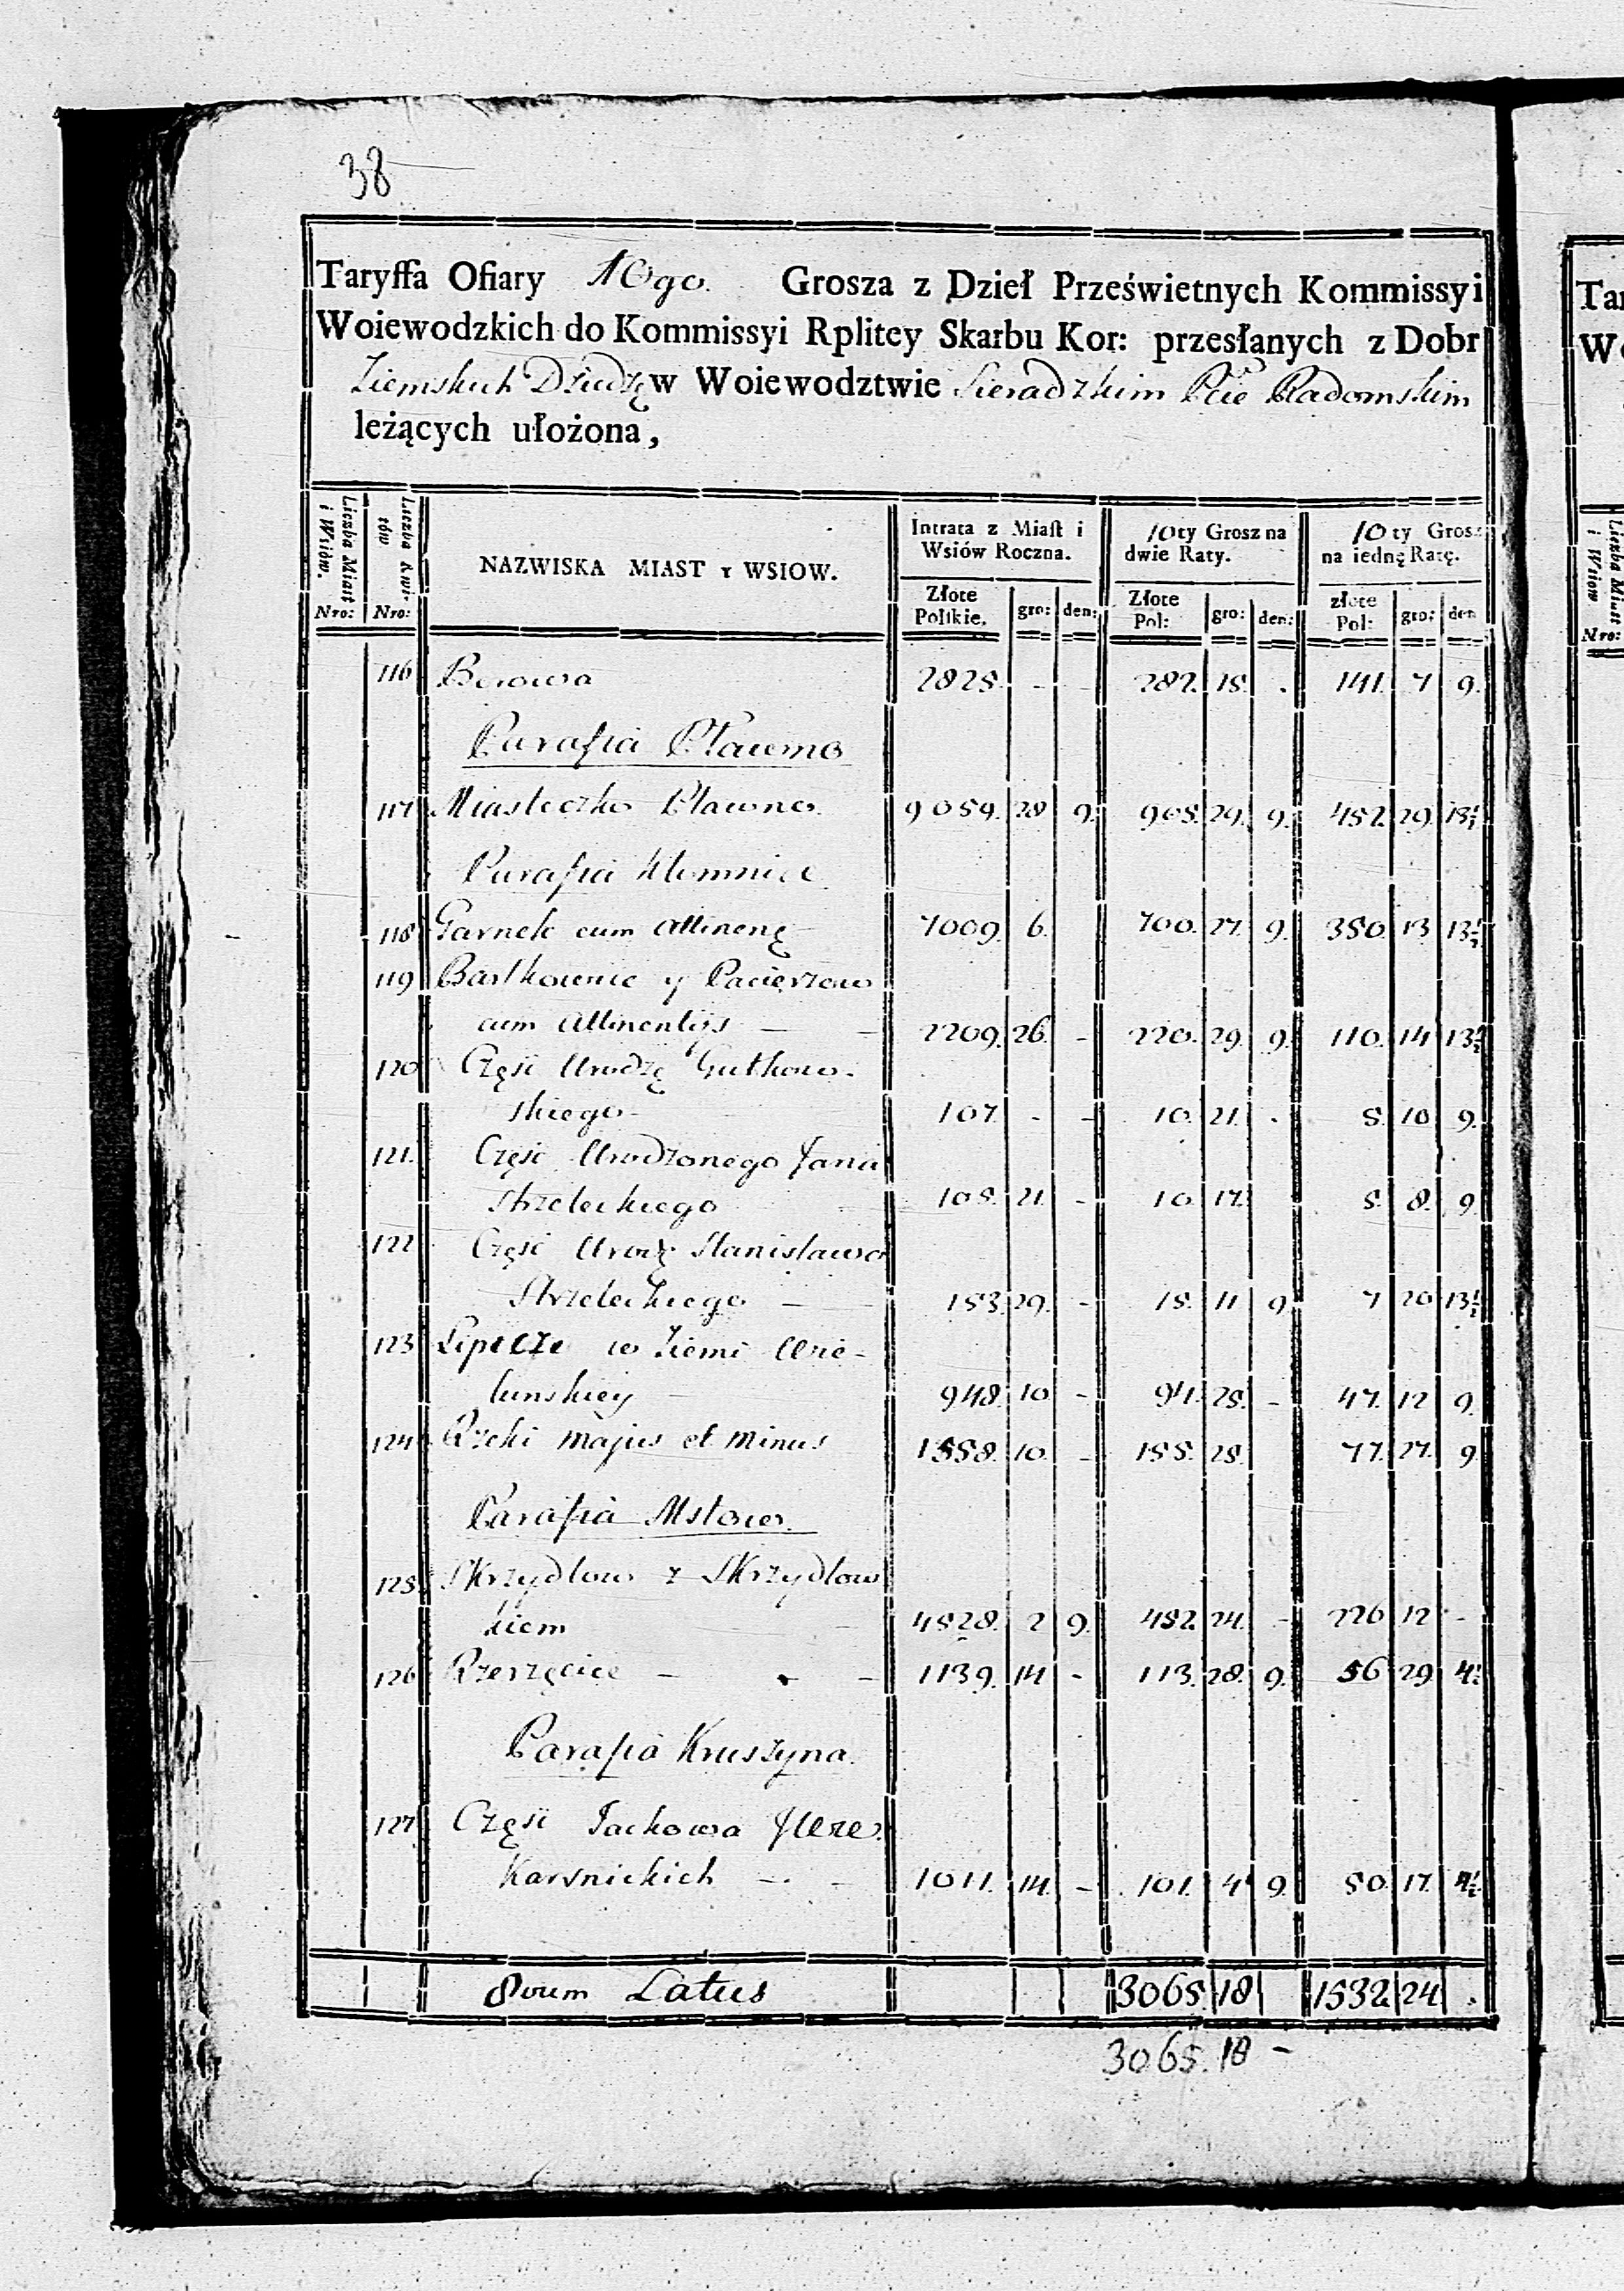 38
Taryffa Ofiary 10go. Grosza z Dzieł Prześwietnych Kommissyi
Woiewodzkich do Kommissyi Rplitey Skarbu Kor: przesłanych z Dobr
Ziemskich Dziedzę w Woiewodztwie Sieradzkim Pcie Radomskim
leżących ułożona,
Liczba Miast i Wsiów. Nro: Liczba Kwitów Nro: NAZWISKA MIAST Y WSIOW. Intrata z Miast i Wsiów Roczna. 10ty Grosz na dwie Raty. 10ty Grosz na iednę Ratę.
Złote Polskie. gro: den: Złote Pol: gro: den: złote Pol: gro: den
116 Borowa 2825. - - 282. 15. . 141. 7 9.
Parafia Pławno
117 Miasteczko Pławno. 9059. 28 9. 905. 29. 9. 452. 29. 13½
Parafia Kłomnice
118 Garnek cum attinenę 7009. 6. 700. 27. 9. 350. 13 13½
119 Bartkowice y Pacierzow
cum attinentijs - 2209. 26. - 220. 29. 9. 110. 14 13½
120 Część Urodzę Gutkow-
skiego 107. - - 10. 21. . 5. 10 9.
121. Część Urodzonego Jana
Strzeleckiego 105. 21. - 10. 17. 5. 8. 9.
122 Część Urodz Stanisława
Strzeleckiego - 153. 29. - 15. 11 9. 7 20 13½
123 Lipicze w Ziemi Wie-
lunskiey 948. 10 - 94. 25. - 47. 12 9.
124 Rzeki majus et minus 1558. 10. - 155. 25. 77. 27. 9.
Parafia Mstow.
125. Skrzydlow z Skrzydlow
kiem 4528. 2 9. 452. 24. - 226 12 -
126 Rzerzęcice - - 1139. 14 - 113. 28. 9. 56 29 4½
Parafia Kruszyna.
127 Część Jackowa
Karsnickich 1011. 14. - 101. 4 9. 50. 17. 4½
Latus 3065. 18 1532. 24 .
3065. 18 -
Ta
W
Liczba Miast i Wsiow
Nro: